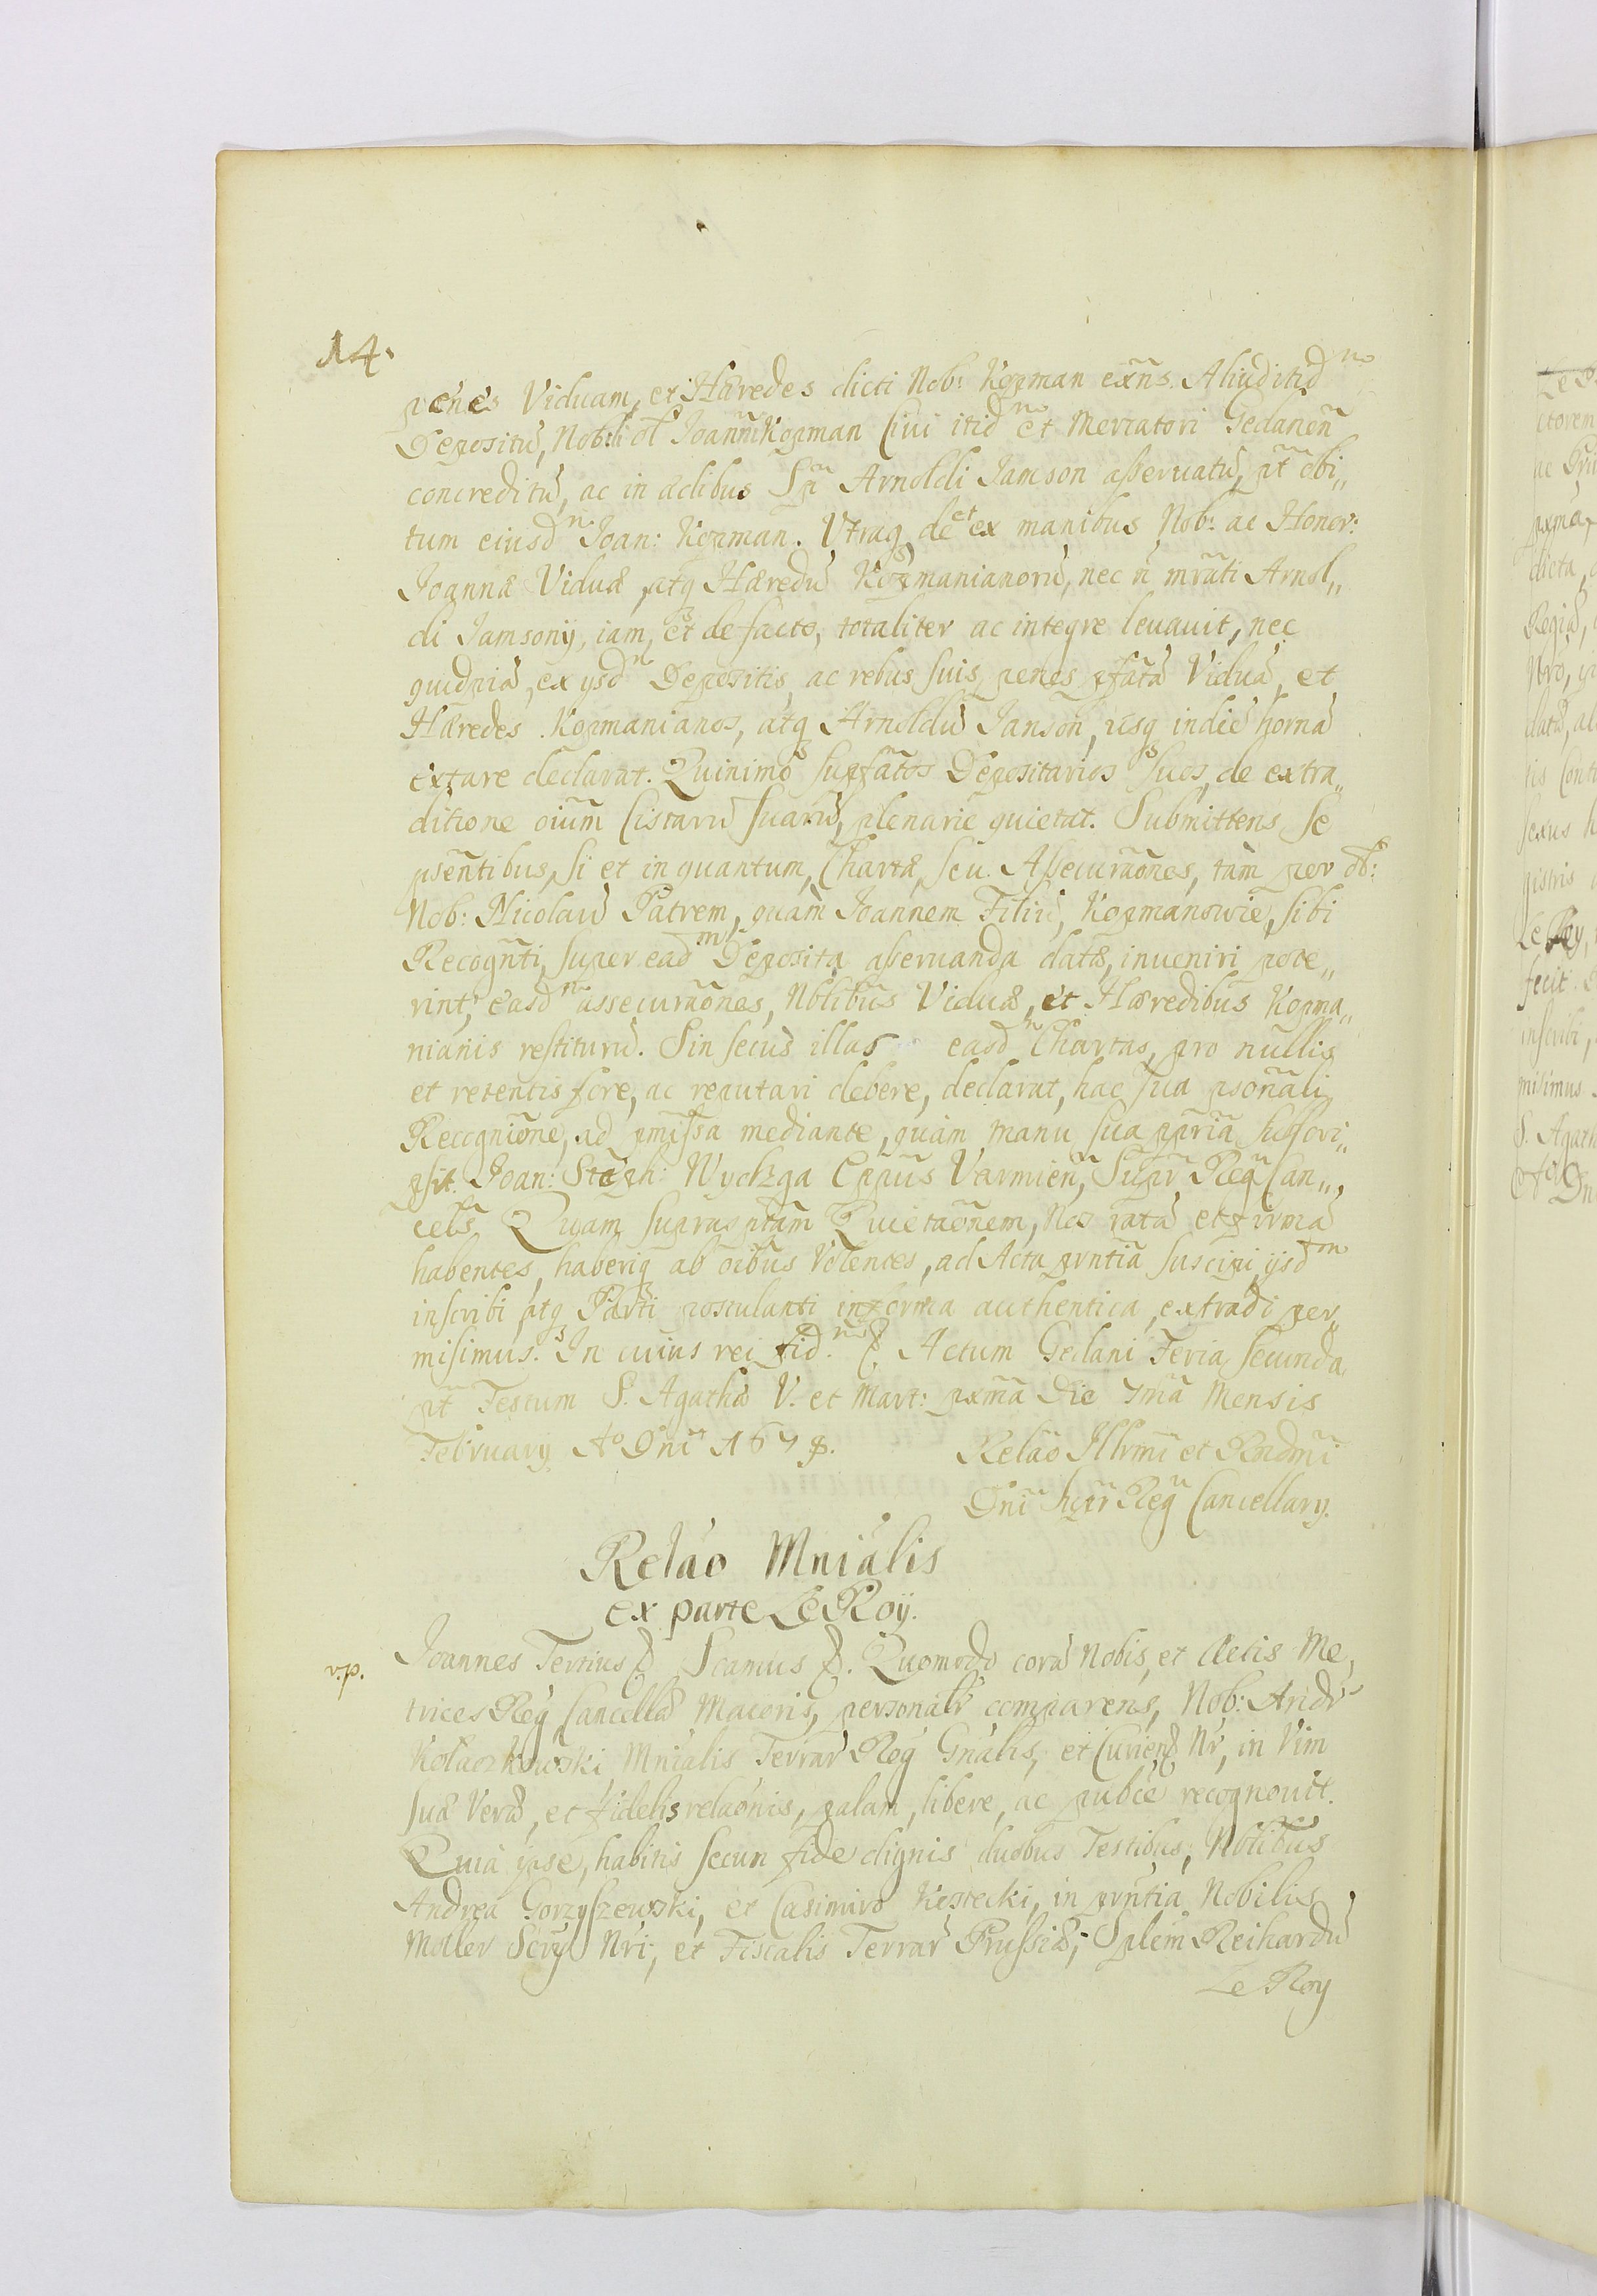 14.
penes Viduam, et Hæredes dicti Nob: Kopman exñs. Aliud itid͞m
Depositũ, Nobili ol̃ Joanñi Kopman Civi itid͞m et Mercatori Gedaneñ
concreditũ, ac in ædibus Sp̃ Arnoldi Jamson asservatũ, p̃t obi„
tum eiusd͞m Joan: Kopman. Utraq de et ex manibus Nob: ac Honor:
Joannæ Viduæ, atq Hæredũ Kopmanianorũ, nec ñ mrãti Arnol„
di Jamsonij, iam, et de facto, totaliter ac integre levavit, nec
quidpiã, ex ijsd͞m Depositis, ac rebus suis, penes p̃fatã Viduã, et
Hæredes Kopmanianos, atq Arnoldũ Janson, usq in diẽ hornã
extare declarat. Quinimò sup̃fatos Depositarios suos, de extra„
ditione oĩum Cistarũ suarũ, plenariè quietat. Submittens se
p̃sentibus, si et in quantum, Chartæ, seu Assecurãones, tàm per ol̃:
Nob: Nicolaũ Patrem, quàm Joannem Filiũ, Kopmansowie, sibi
Recogñti, super ead͞m Deposita asservanda datæ, inveniri pote„
rint, easd͞m assecurãones, Nblibus Viduæ, et Hæredibus Kopma„
nianis restiturũ. Sin secus illas easd͞m Chartas, pro nullis
et retentis fore, ac reputari debere, declarat, hac sua p̃sonali
Recognĩone, ad p̃missa mediante, quàm manu sua p̃pria subscri„
psit. Joan: Steph: Wydzga Ep̃pus Varmieñ, Sup̃r Regñ Can„
cells̃. Quam supras̃ptam Quietãonem, Nos ratã et firmã
habentes, haberiq ab oĩbus volentes, ad Acta p̃ntia suscipi, ijsd͞m
inscribi, atq Parti postulanti in forma authentica, extradi per„
misimus. In cuius rei fid͞m &. Actum Gedani Feria secunda
p̃t Festum S. Agathæ V. et Mart: p̃xma Die 7mã Mensis
Februarij Aº Dñi 1678. Relão Illr̃mi et Rñdmi
Dñi sup̃r Regñ Cancellarij.
Relão Mnĩalis
ex parte Le Roy.
v.p.
Joannes Tertius & Scamus &. Quomodo corã Nobis, et Actis Me„
trices Regñ Cancellæ Maioris, personalr̃ comparens, Nob: Andr̃
Kołaczkowski Mnĩalis Terrar̃ Regñ Gñalis, et Curieñ Nr̃, in Vim
suæ Veræ, et fidelis relãonis, palam, libere, ac publcè recognovit.
Quia ipse, habitis secum fide dignis duobus Testibus, Nblibus
Andrea Gorzyszewski, et Casimiro Kestecki, in p̃ntia Nobilis
Moller Scrij Nri, et Fiscalis Terrar̃ Prussiæ, Splem Reihardũ
Le Roy